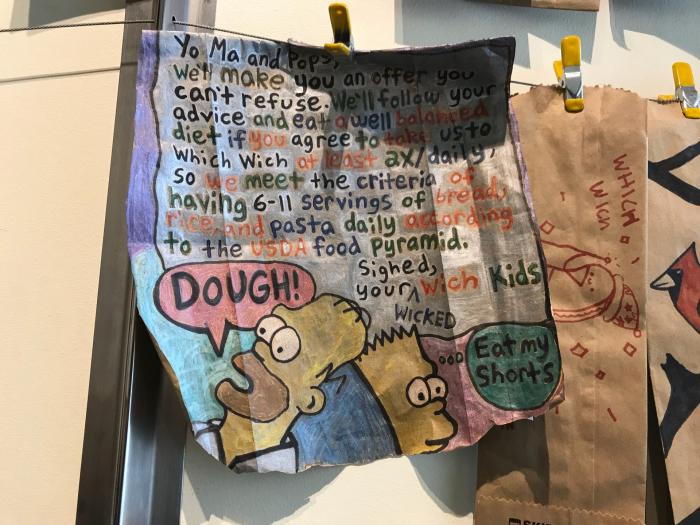 Yo Ma and Pops,
We'll make you an offer you
can't refuse. We'll follow your
advice and eat a well balanced
diet if you agree to take us to
Which Wich at least 2x/daily,
so we meet the criteria of
having 6-11 servings of bread,
rice, and pasta daily according
to the USDA food pyramid.
Signed,
your ^ Wich Kids
WICKED
DOUGH!
... Eat my
Shorts
WHICH
WICH